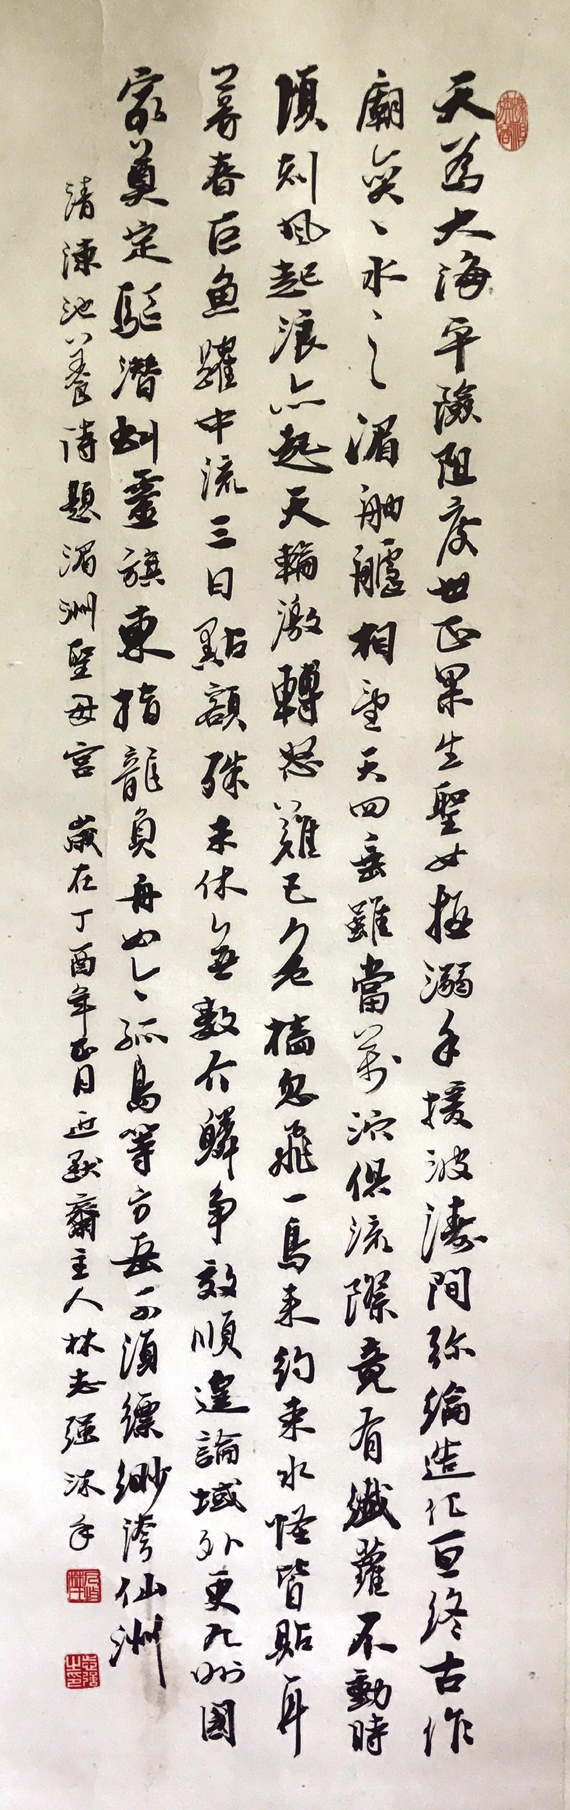 天爲大海平險阻度世正果生聖女極溺手援波濤間弥綸造化亘終古作
廟奕〻水之湄舳艫相望天四垂雖當萬派俱流際竟有纖蘿不動時
頃刻風起浪亦起天輪激轉怒難已危檣忽飛一鳥来約束水怪皆貼耳
暮春巨魚躍中流三日點額殊未休無數介鱗争效順遑論域外更九州國
家奠定驅潜虬靈旗東指龍負舟孤島等方岳不須縹緲誇仙洲
清陳池養詩題湄洲聖母宮 歲在丁酉年正月近默齋主人林志强沐手